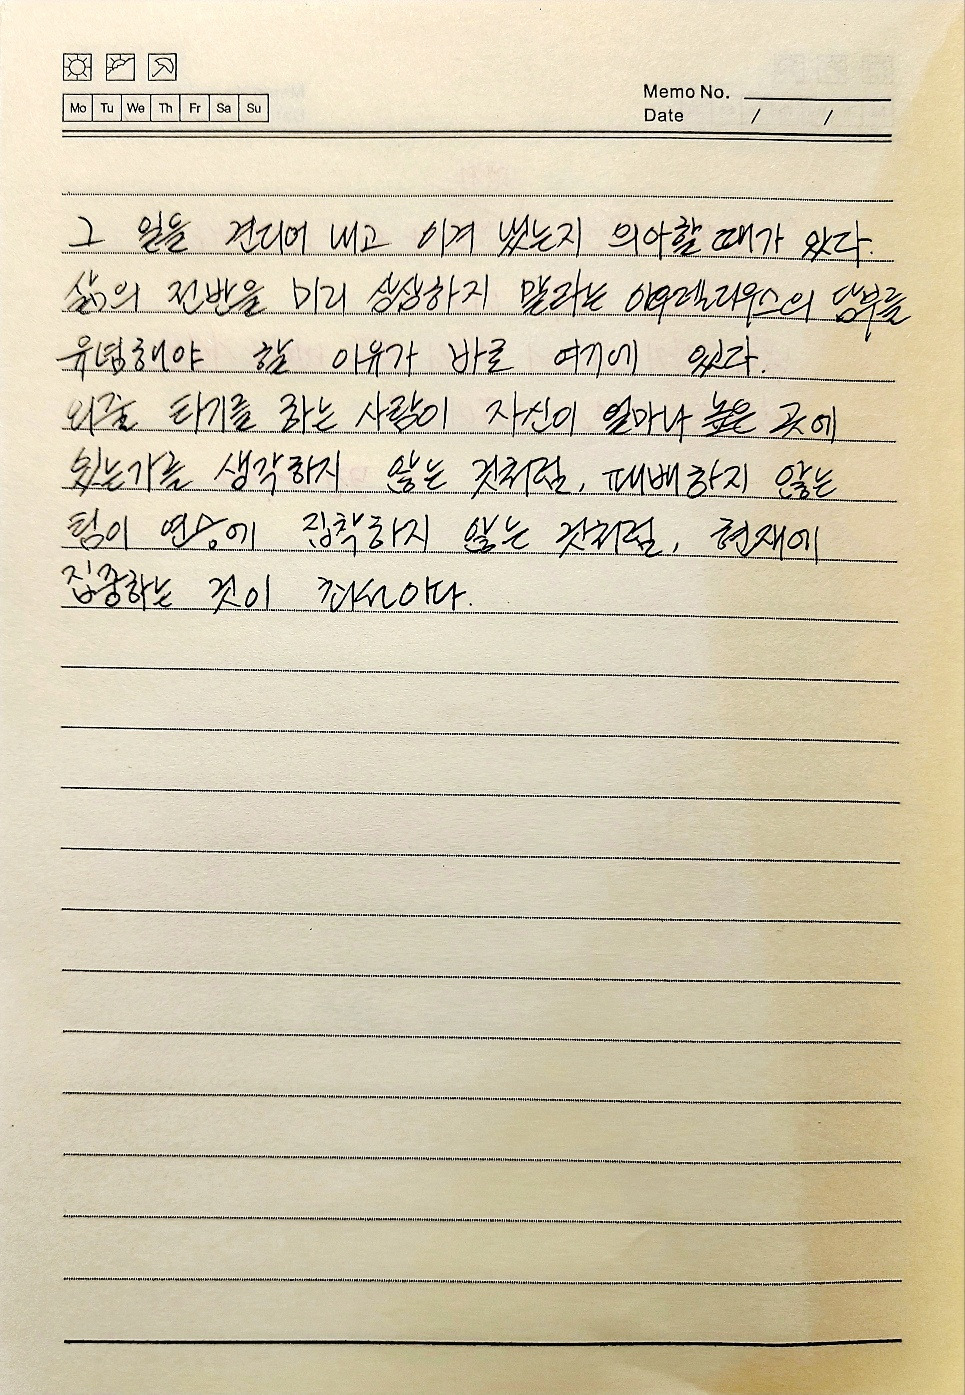 Mo Tu We Th Fr Sa Su
Memo No.
Date / /
그 일을 견디어 내고 이겨 냈는지 의아할 때가 있다.
삶의 전반을 미리 상상하지 말라는 아우렐리우스의 당부를
유념해야 할 이유가 바로 여기에 있다.
외줄 타기를 하는 사람이 자신이 얼마나 높은 곳에
있는가를 생각하지 않는 것처럼, 패배하지 않는
팀이 연승에 집착하지 않는 것처럼, 현재에
집중하는 것이 최선이다.